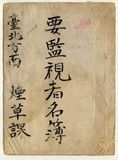 要監視者名簿
臺北方面 煙草課